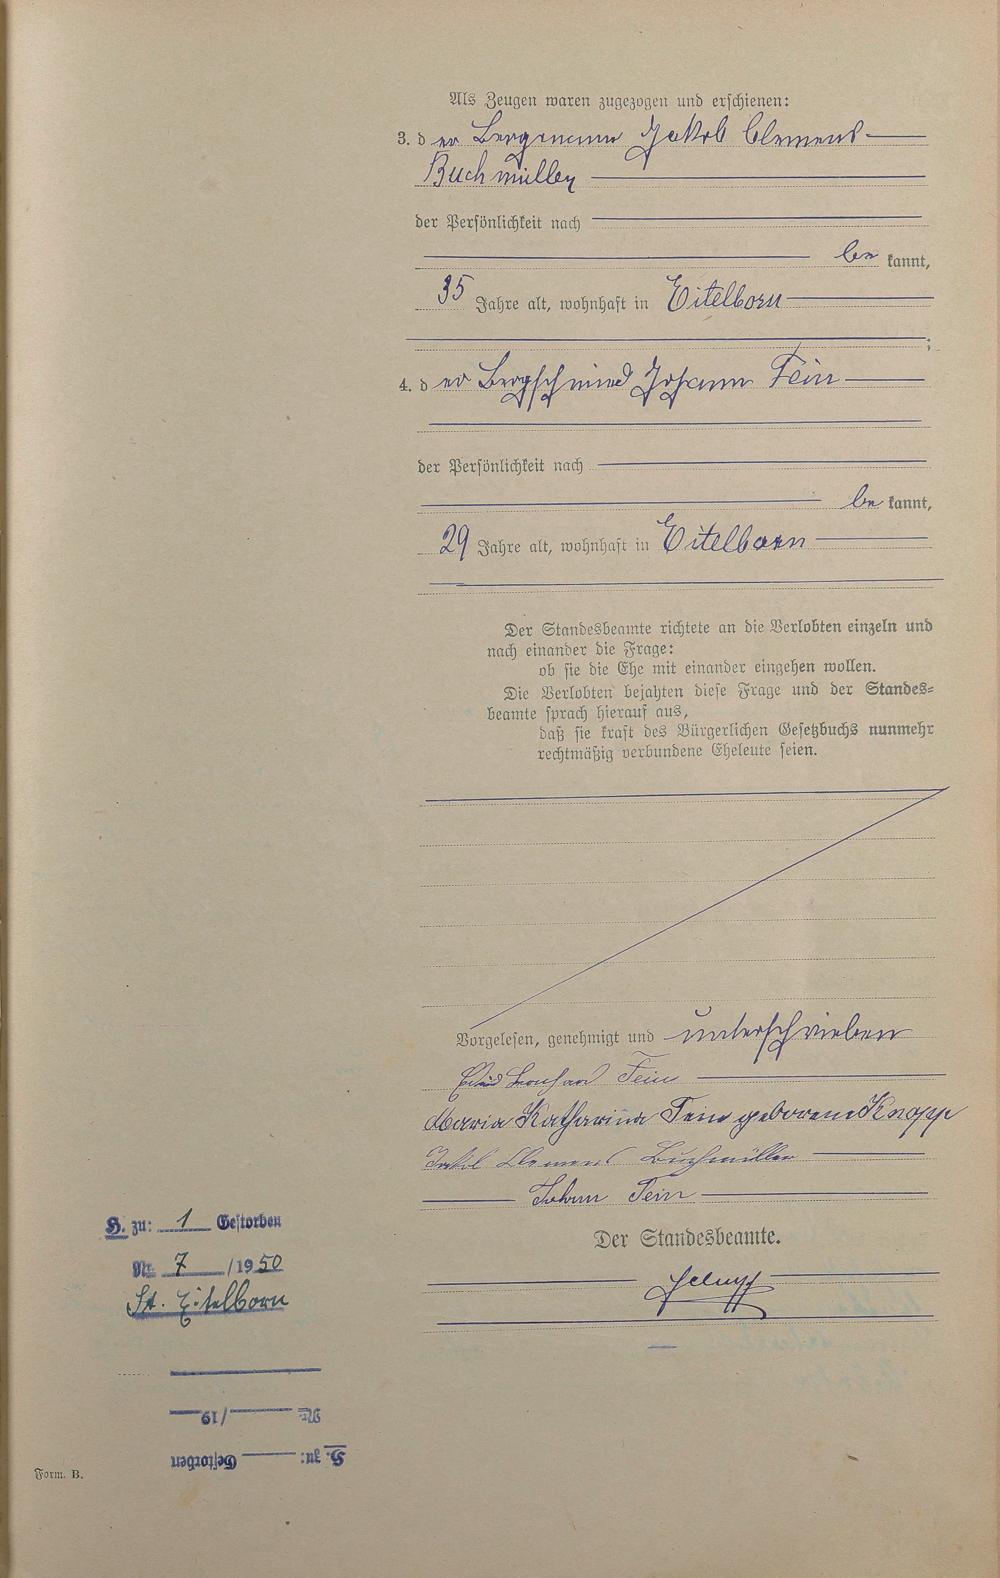 Als Zeugen waren zugezogen und erschienen:
3. der Bergmann Jakob Clemens
Buchmüller
der Persönlichkeit nach
be kannt,
35 Jahre alt, wohnhaft in Eitelborn
;
4. der Bergschmied Johann Fein
der Persönlichkeit nach
be kannt,
29 Jahre alt, wohnhaft in Eitelborn
Der Standesbeamte richtete an die Verlobten einzeln und
nach einander die Frage:
ob sie die Ehe mit einander eingehen wollen.
Die Verlobten bejahten diese Frage und der Standes-
beamte sprach hierauf aus,
daß sie kraft des Bürgerlichen Gesetzbuchs nunmehr
rechtmäßig verbundene Eheleute seien.
Vorgelesen, genehmigt und unterschrieben
Fein
Maria Katharina Fein geborene Knopp
Jakob Clemens Buchmüller
Johann Fein
Der Standesbeamte.
H. zu: 1 Gestorben
Nr. 7 /1950
St. Eitelborn
H. zu: Gestorben
Nr. /19
Form. B.